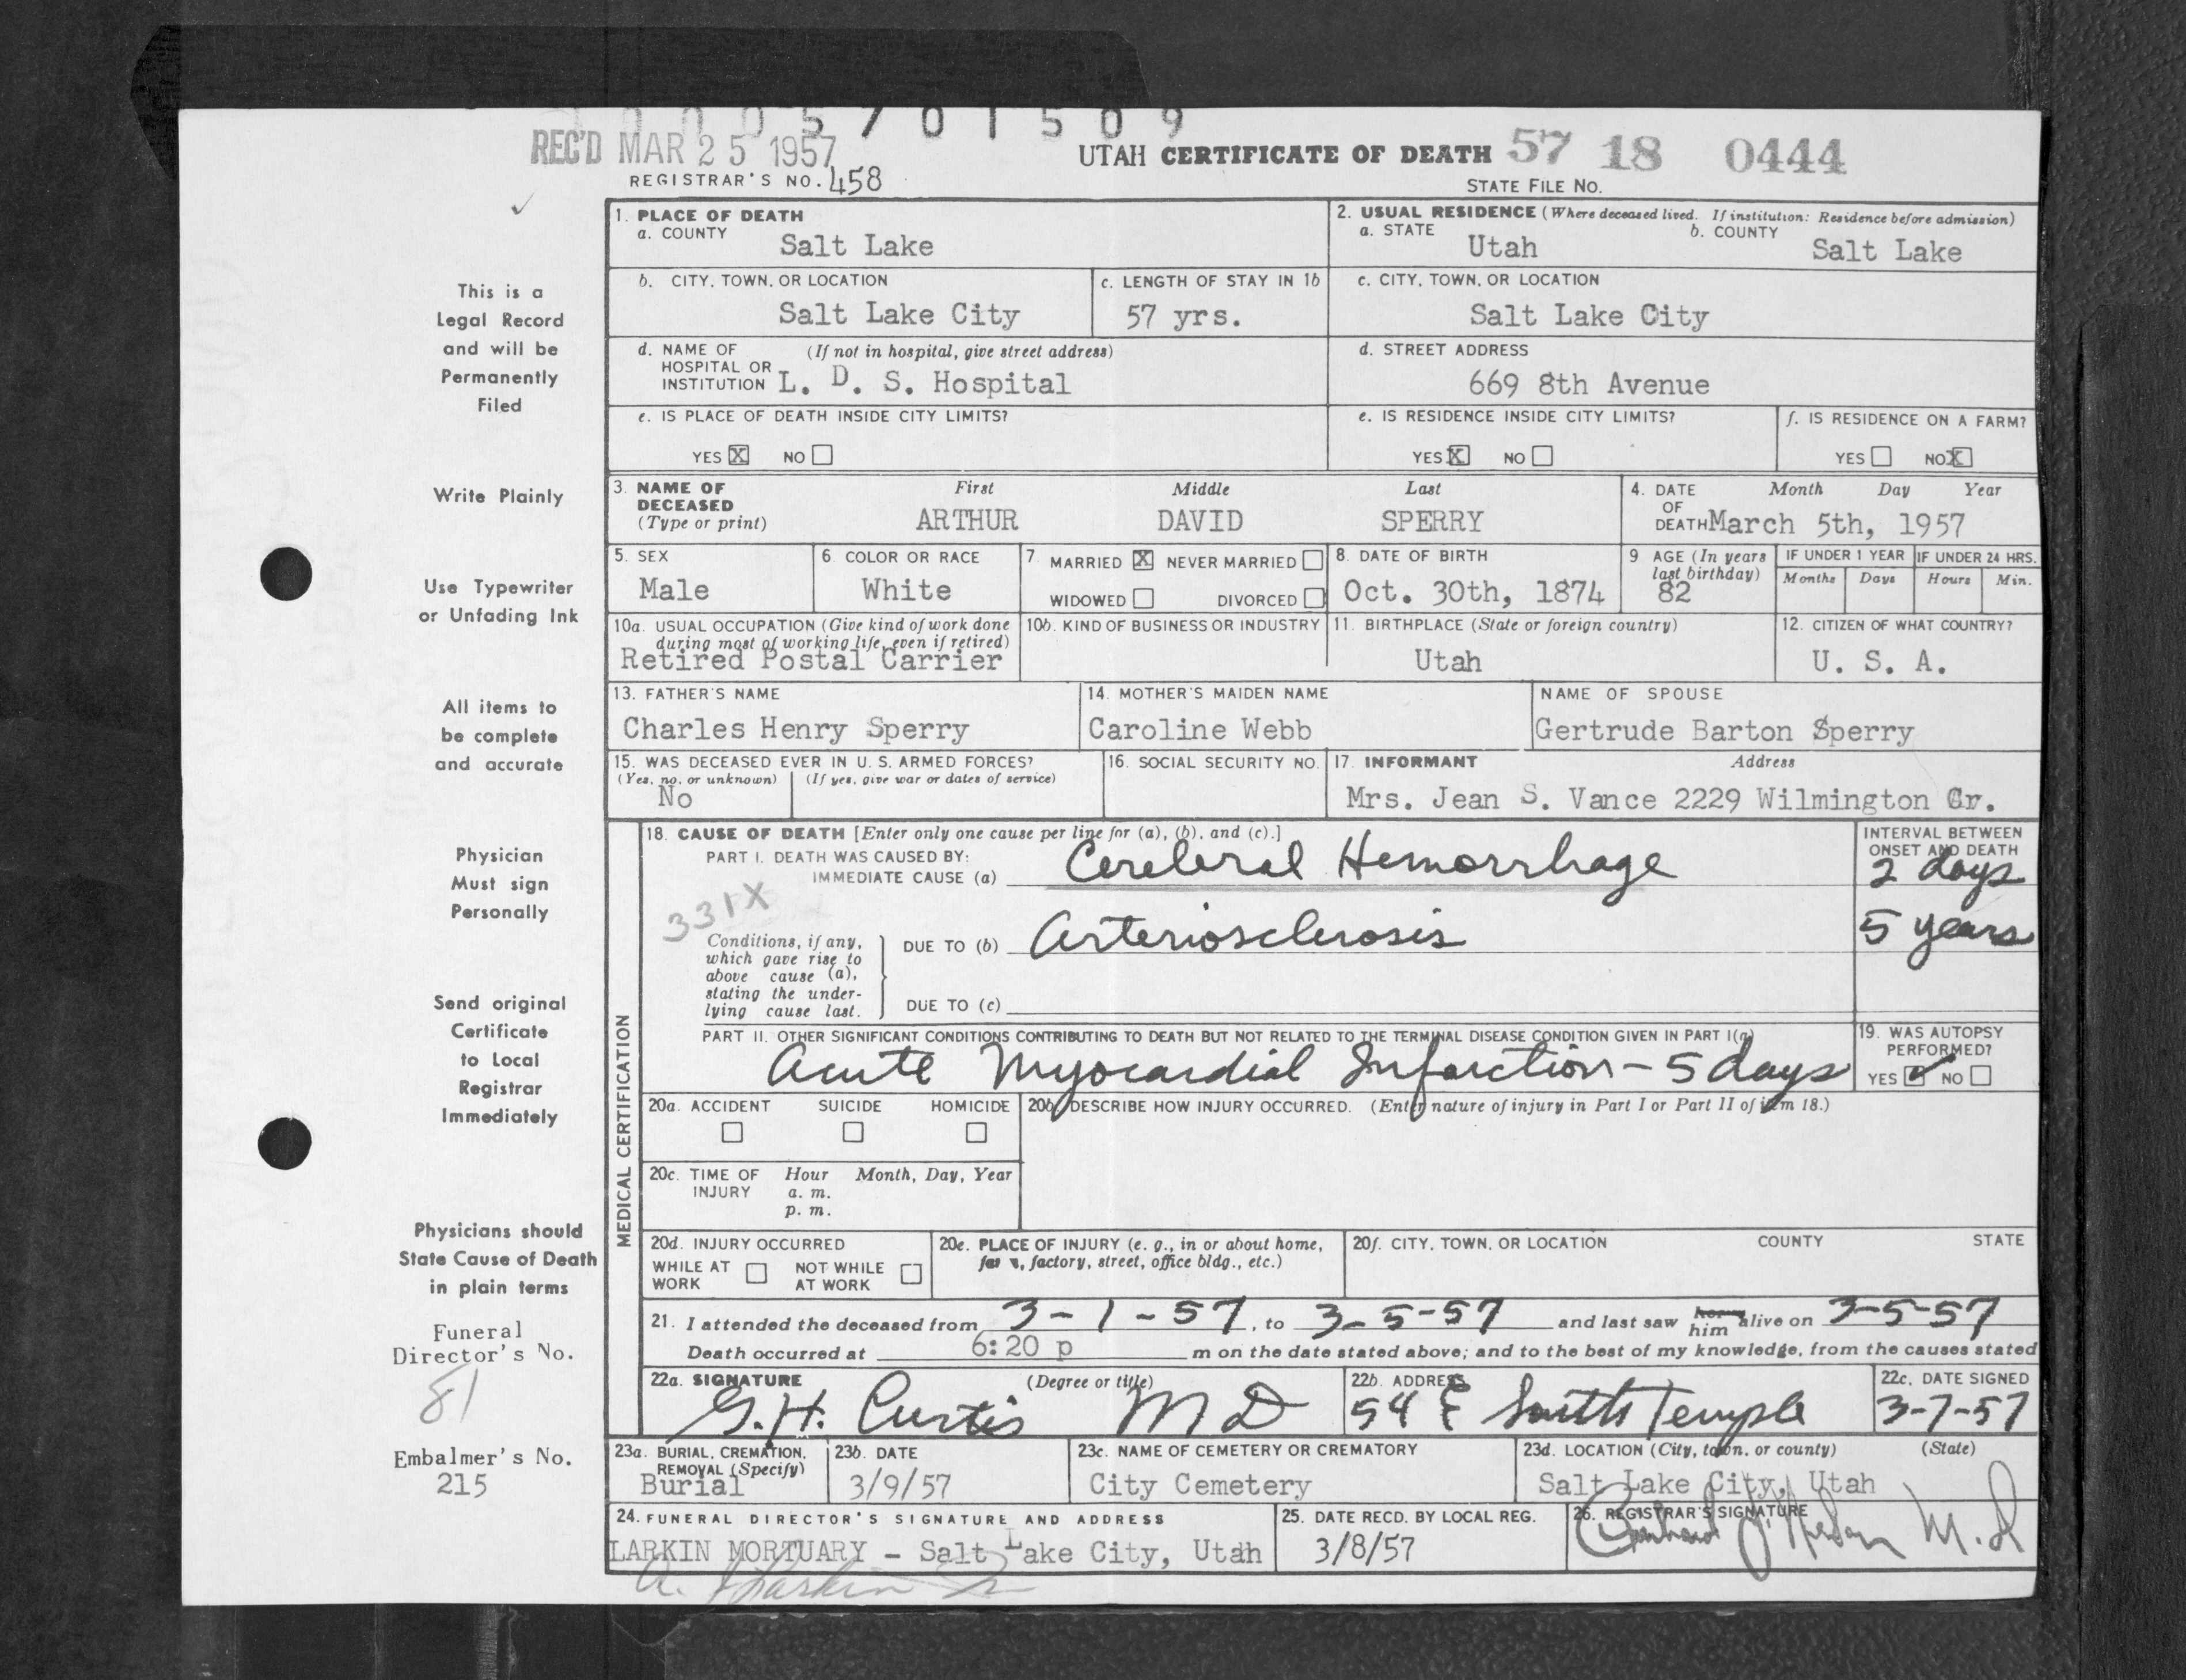 10005701509
REC'D MAR 25 1957
UTAH CERTIFICATE OF DEATH 57 18 0444
REGISTRAR'S NO. 458
STATE FILE No.
This is a
Legal Record
and will be
Permanently
Filed
Write Plainly
Use Typewriter
or Unfading Ink
All items to
be complete
and accurate
Physician
Must sign
Personally
Send original
Certificate
to Local
Registrar
Immediately
Physicians should
State Cause of Death
in plain terms
Funeral
Director's No.
81
Embalmer's No.
215
1. PLACE OF DEATH
a. COUNTY Salt Lake
2. USUAL RESIDENCE (Where deceased lived. If institution: Residence before admission)
a. STATE Utah b. COUNTY Salt Lake
b. CITY, TOWN, OR LOCATION
Salt Lake City
c. LENGTH OF STAY IN 1b
57 yrs.
c. CITY, TOWN, OR LOCATION
Salt Lake City
d. NAME OF (If not in hospital, give street address)
HOSPITAL OR
INSTITUTION L. D. S. Hospital
d. STREET ADDRESS
669 8th Avenue
e. IS PLACE OF DEATH INSIDE CITY LIMITS?
YES X NO
e. IS RESIDENCE INSIDE CITY LIMITS?
YES X NO
f. IS RESIDENCE ON A FARM?
YES NO X
3. NAME OF First Middle Last
DECEASED
(Type or print) ARTHUR DAVID SPERRY
4. DATE Month Day Year
OF
DEATH March 5th, 1957
5. SEX
Male
6. COLOR OR RACE
White
7. MARRIED X NEVER MARRIED
WIDOWED DIVORCED
8. DATE OF BIRTH
Oct. 30th, 1874
9 AGE (In years
last birthday)
82
IF UNDER 1 YEAR
Months Days
IF UNDER 24 HRS.
Hours Min.
10a. USUAL OCCUPATION (Give kind of work done
during most of working life, even if retired)
Retired Postal Carrier
10b. KIND OF BUSINESS OR INDUSTRY
11. BIRTHPLACE (State or foreign country)
Utah
12. CITIZEN OF WHAT COUNTRY?
U. S. A.
13. FATHER'S NAME
Charles Henry Sperry
14. MOTHER'S MAIDEN NAME
Caroline Webb
NAME OF SPOUSE
Gertrude Barton Sperry
15. WAS DECEASED EVER IN U. S. ARMED FORCES?
(Yes, no, or unknown) (If yes, give war or dates of service)
No
16. SOCIAL SECURITY NO.
17. INFORMANT Address
Mrs. Jean S. Vance 2229 Wilmington Cr.
MEDICAL CERTIFICATION
18. CAUSE OF DEATH [Enter only one cause per line for (a), (b), and (c).]
PART I. DEATH WAS CAUSED BY:
IMMEDIATE CAUSE (a) Cerebral Hemorrhage
INTERVAL BETWEEN
ONSET AND DEATH
2 days
331X
Conditions, if any,
which gave rise to
above cause (a),
stating the under-
lying cause last.
DUE TO (b) Arteriosclerosis
5 years
DUE TO (c)
PART II. OTHER SIGNIFICANT CONDITIONS CONTRIBUTING TO DEATH BUT NOT RELATED TO THE TERMINAL DISEASE CONDITION GIVEN IN PART I(a)
Acute Myocardial Infarction - 5 days
19. WAS AUTOPSY
PERFORMED?
YES NO
20a. ACCIDENT SUICIDE HOMICIDE
20b. DESCRIBE HOW INJURY OCCURRED. (Enter nature of injury in Part I or Part II of item 18.)
20c. TIME OF Hour Month, Day, Year
INJURY a. m.
p. m.
20d. INJURY OCCURRED
WHILE AT NOT WHILE
WORK AT WORK
20e. PLACE OF INJURY (e. g., in or about home,
farm, factory, street, office bldg., etc.)
20f. CITY, TOWN, OR LOCATION COUNTY STATE
21. I attended the deceased from 3-1-57, to 3-5-57 and last saw her him alive on 3-5-57
Death occurred at 6:20 p m on the date stated above; and to the best of my knowledge, from the causes stated
22a. SIGNATURE (Degree or title)
G. H. Curtis M D
22b. ADDRESS
54 E South Temple
22c. DATE SIGNED
3-7-57
23a. BURIAL, CREMATION,
REMOVAL (Specify)
Burial
23b. DATE
3/9/57
23c. NAME OF CEMETERY OR CREMATORY
City Cemetery
23d. LOCATION (City, town, or county) (State)
Salt Lake City, Utah
24. FUNERAL DIRECTOR'S SIGNATURE AND ADDRESS
LARKIN MORTUARY - Salt Lake City, Utah
25. DATE RECD. BY LOCAL REG.
3/8/57
26. REGISTRAR'S SIGNATURE
M.D